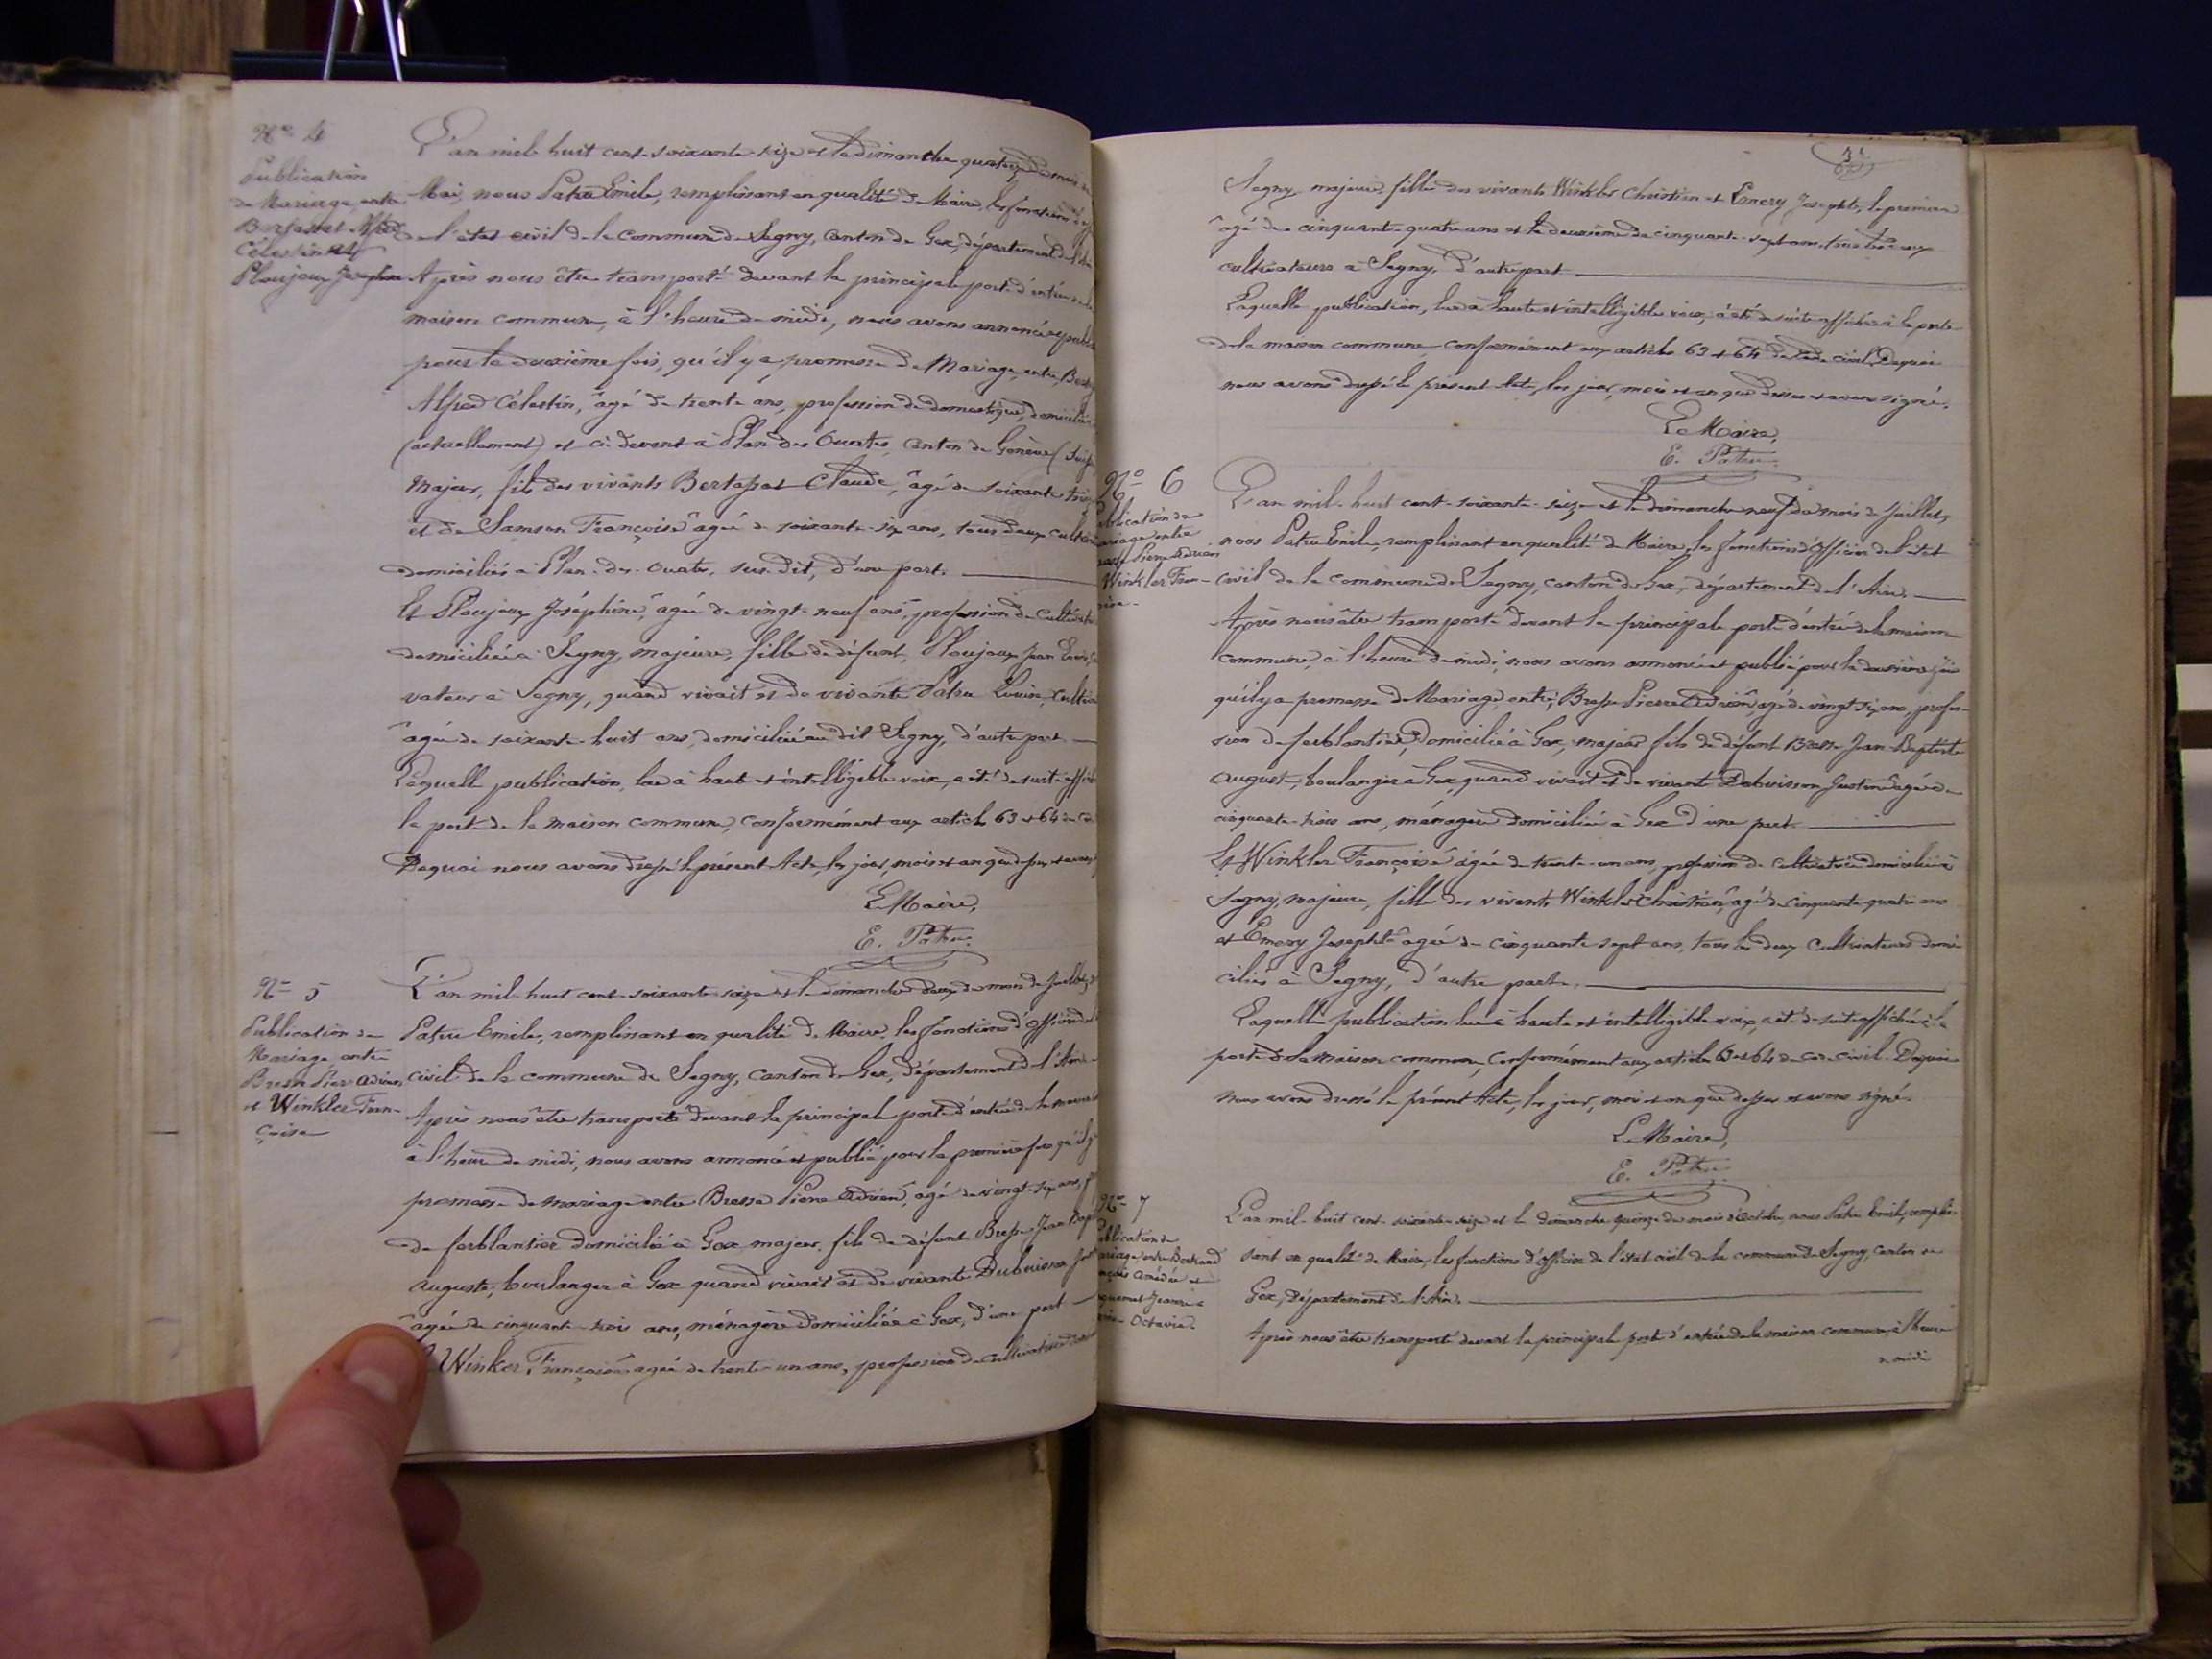 Nº 4
Publication
de Mariage entre
Bertasset Alfred
Célestin et
Ploujoux Joséphine
L'an mil huit cent soixante-seize et le dimanche quatorze du mois de
Mai, nous Patru Emile, remplissant en qualité de Maire, les fonctions
de l'état civil de la commune de Segny, canton de Gex, département de l'Ain
Après nous être transporté devant la principale porte d'entrée de la
maison commune, à l'heure de midi, nous avons annoncé et publié
pour la deuxième fois, qu'il y a promesse de Mariage, entre,
Alfred Célestin, âgé de trente ans, profession de domestique, domicilié
(actuellement) et ci-devant à Plan-des-Ouates, canton de Genève
Majeur, fils des vivants Bertasset Claude, âgé de soixante
et de Samson Françoise âgée de soixante-six ans, tous deux
domiciliés à Plan-des-Ouates, sus-dit, d'une part.
Et Ploujoux Joséphine, âgée de vingt-neuf ans, profession de
domiciliée à Segny, majeure, fille de défunt, Ploujoux Jean
vateur à Segny, quand vivait et de vivante Patru Louise,
âgée de soixante-huit ans, domiciliée au dit Segny, d'autre part
Laquelle publication, lue à haute et intelligible voix, a été de suite
la porte de la maison commune, conformément aux articles 63 et 64 du
Dequoi nous avons dressé le présent Acte, les jour, mois et an que dessus et avons
Le Maire,
E. Patru
Nº 5
Publication de
Mariage entre
Bresse Pierre Adrien
et Winkler Fran-
çoise
L'an mil-huit cent-soixante-seize et le dimanche deux du mois de Juillet,
Patru Emile, remplissant en qualité de Maire, les fonctions d'officier de
civil de la commune de Segny, canton de Gex, département de l'Ain
Après nous être transporté devant la principale porte d'entrée de la maison
à l'heure de midi, nous avons annoncé et publié pour la première fois qu'il y a
promesse de mariage entre Bresse Pierre Adrien, âgé de vingt-six ans,
de ferblantier domicilié à Gex, majeur, fils de défunt Bresse Jean
Auguste, boulanger à Gex quand vivait et de vivante Dubuisson
âgée de cinquante-trois ans, ménagère domiciliée à Gex, d'une part
Winker Françoise âgée de trente-un ans, profession de cultivatrice
Segny, majeure, fille des vivants Winkler Christian et Emery Josephte, le premier
âgé de cinquante-quatre ans et la deuxième de cinquante-sept ans, tous les deux
cultivateurs à Segny, d'autre part
Laquelle publication, lue à haute et intelligible voix, a été de suite affichée à la porte
de la maison commune conformément aux articles 63 et 64 du Code civil. Dequoi
nous avons dressé le présent Acte, les jour, mois et an que dessus et avons signé.
Le Maire,
E. Patru
Nº 6
Publication de
Mariage entre
Pierre Adrien
Winkler Fran-
L'an mil-huit cent-soixante-seize et le dimanche neuf du mois de Juillet,
nous Patru Emile, remplissant en qualité de Maire, les fonctions d'Officier de l'état
civil de la commune de Segny, canton de Gex, département de l'Ain.
Après nous être transporté devant la principale porte d'entrée de la maison
commune, à l'heure de midi, nous avons annoncé et publié pour la deuxième fois
qu'il y a promesse de Mariage entre, Bresse Pierre Adrien, âgé de vingt-six ans, profes-
sion de ferblantier, domicilié à Gex, majeur, fils de défunt Bresse Jean-Baptiste
Auguste, boulanger à Gex, quand vivait et de vivante Dubuisson Justine âgée de
cinquante-trois ans, ménagère domiciliée à Gex d'une part.
Et Winkler Françoise âgée de trente-un ans, profession de cultivatrice domiciliée à
Segny, majeure, fille des vivants Winkler Christian, âgé de cinquante-quatre ans
et Emery Josephte âgée de cinquante sept ans, tous les deux Cultivateurs domi-
ciliés à Segny, d'autre part.
Laquelle publication lue à haute et intelligible voix, a été de suite affichée à la
porte de la maison commune, conformément aux articles 63 et 64 du Code civil. Dequoi
nous avons dressé le présent Acte, les jour, mois et an que dessus et avons signé.
Le Maire,
E. Patru
Nº 7
Publication de
Mariage entre Bertrand
Amédée et
Jeanne
Octavie.
L'an mil-huit cent-soixante-seize et le dimanche quinze du mois d'Octobre, nous Patru Emile, remplis-
sant en qualité de Maire, les fonctions d'officier de l'état civil de la commune de Segny, canton de
Gex, département de l'Ain.
Après nous être transporté devant la principale porte d'entrée de la maison commune, à l'heure
de midi